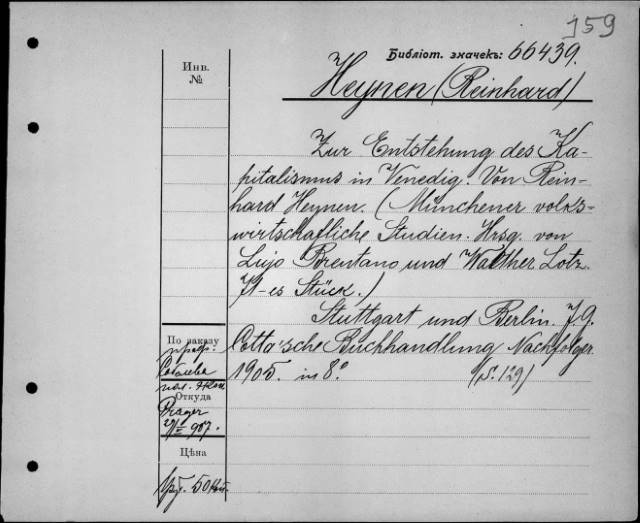 159
Библіот. значекъ: 66439.
Инв.
№
Heynen (Reinhard)
Zur Entstehung des Ka-
pitalismus in Venedig. Von Rein-
hard Heynen. (Münchener volks-
wirtschaftliche Studien. Hrsg. von
Lujo Brentano und Walther Lotz.
71-es Stück.)
Stuttgart und Berlin. J. G.
Cotta'sche Buchhandlung Nachfolger.
1905. in 8º. (S. 129)
По заказу
проф.
Соболева
Откуда
Prager
907.
Цѣна
50 коп.